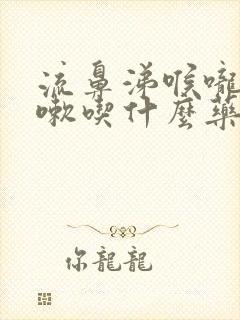 流鼻涕喉嚨
嗽喫什麼藥
你龍龍